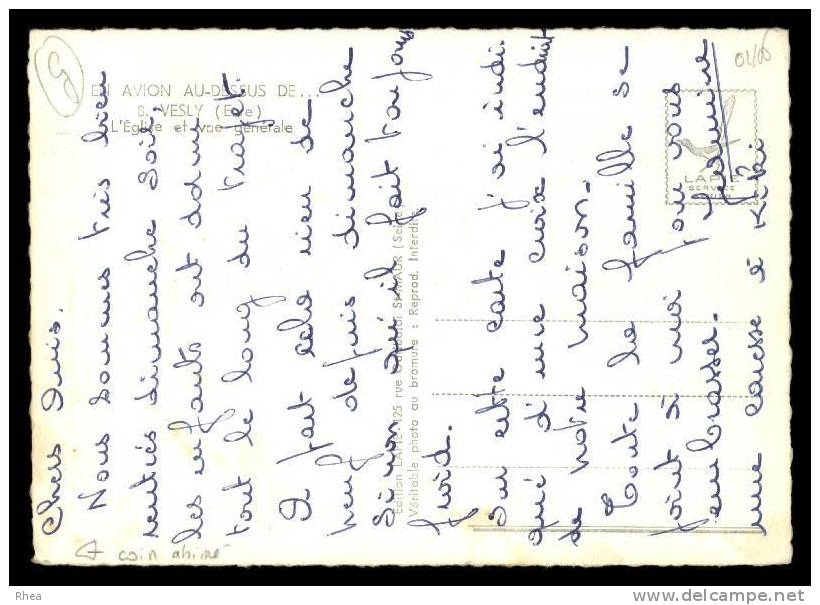 EN AVION AU-DESSUS DE...
8. VESLY (Eure)
L'Église et vue générale
LAPIE
SERVICE
Edition LAPIE 125 rue Garibaldi St-MAUR (Seine)
Véritable photo au bromure : Reprod. Interdite
Chers Amis,
Nous sommes très bien
rentrés dimanche soir,
les enfants ont dormi
tout le long du trajet.
Il fait echo rien de
neuf depuis dimanche
si non qu'il fait toujours
froid.
Sur cette carte j'ai indi
qué d'une croix l'endroit
de notre maison.
Toute la famille se
joint à moi pour vous
embrasser.
Jeanine
une caresse à Kiki
+ coin abimé
Rhea
www.delcampe.net